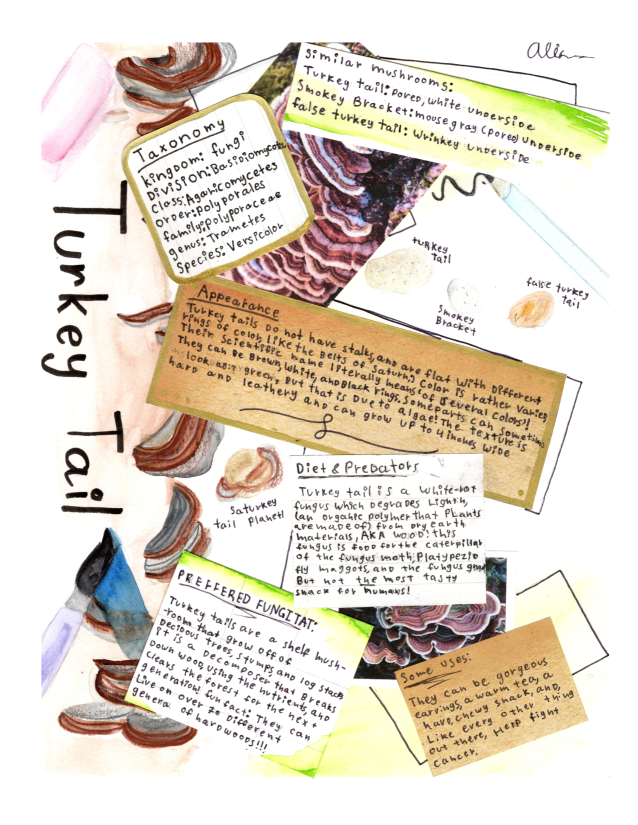 Similar mushrooms:
Turkey tail: pored, white underside
Smokey Bracket: mouse gray (pored) underside
false turkey tail: Wrinkey underside
Taxonomy
kingdom: fungi
Division: Basidiomycota
Class: Agaricomycetes
Order: polyporales
family: polyporaceae
genus: Trametes
Species: Versicolor
Turkey Tail
turkey
Tail
Smokey
Bracket
false turkey
tail
Appearance
Turkey tails do not have stalks, and are flat with different
rings of color like the Belts of Saturn; Color is rather varied
Their Scientific name literally means of several colors!!
They can be Brown, White, and Black rings. Some parts can sometimes
look green, But that is Due to algae! The texture is
hard and leathery and can grow up to 4 inches wide
Saturkey
tail Planet!
Diet & Predators
Turkey tail is a white-rot
fungus which degrades Lignin,
(an organic polymer that Plants
are made of) from dry earth
materials, AKA WOOD! this
fungus is food for the caterpillar
of the fungus moth, Platypezid
fly maggots, and the fungus gnat
But not the most tasty
snack for humans!
PREFFERED FUNGITAT:
Turkey tails are a shelf mush-
-room that grow off of
Decidious trees, stumps, and log stacks
it is a Decomposer that Breaks
Down wood, using the nutrients, and
Clears the forest for the next
generation fun fact: They can
Live on over 70 Different
genera of hardwoods!!!
Some uses:
They can be gorgeous
earrings, a warm tea, a
have, chewy snack, and,
Like every other thing
out there, Help fight
cancer.